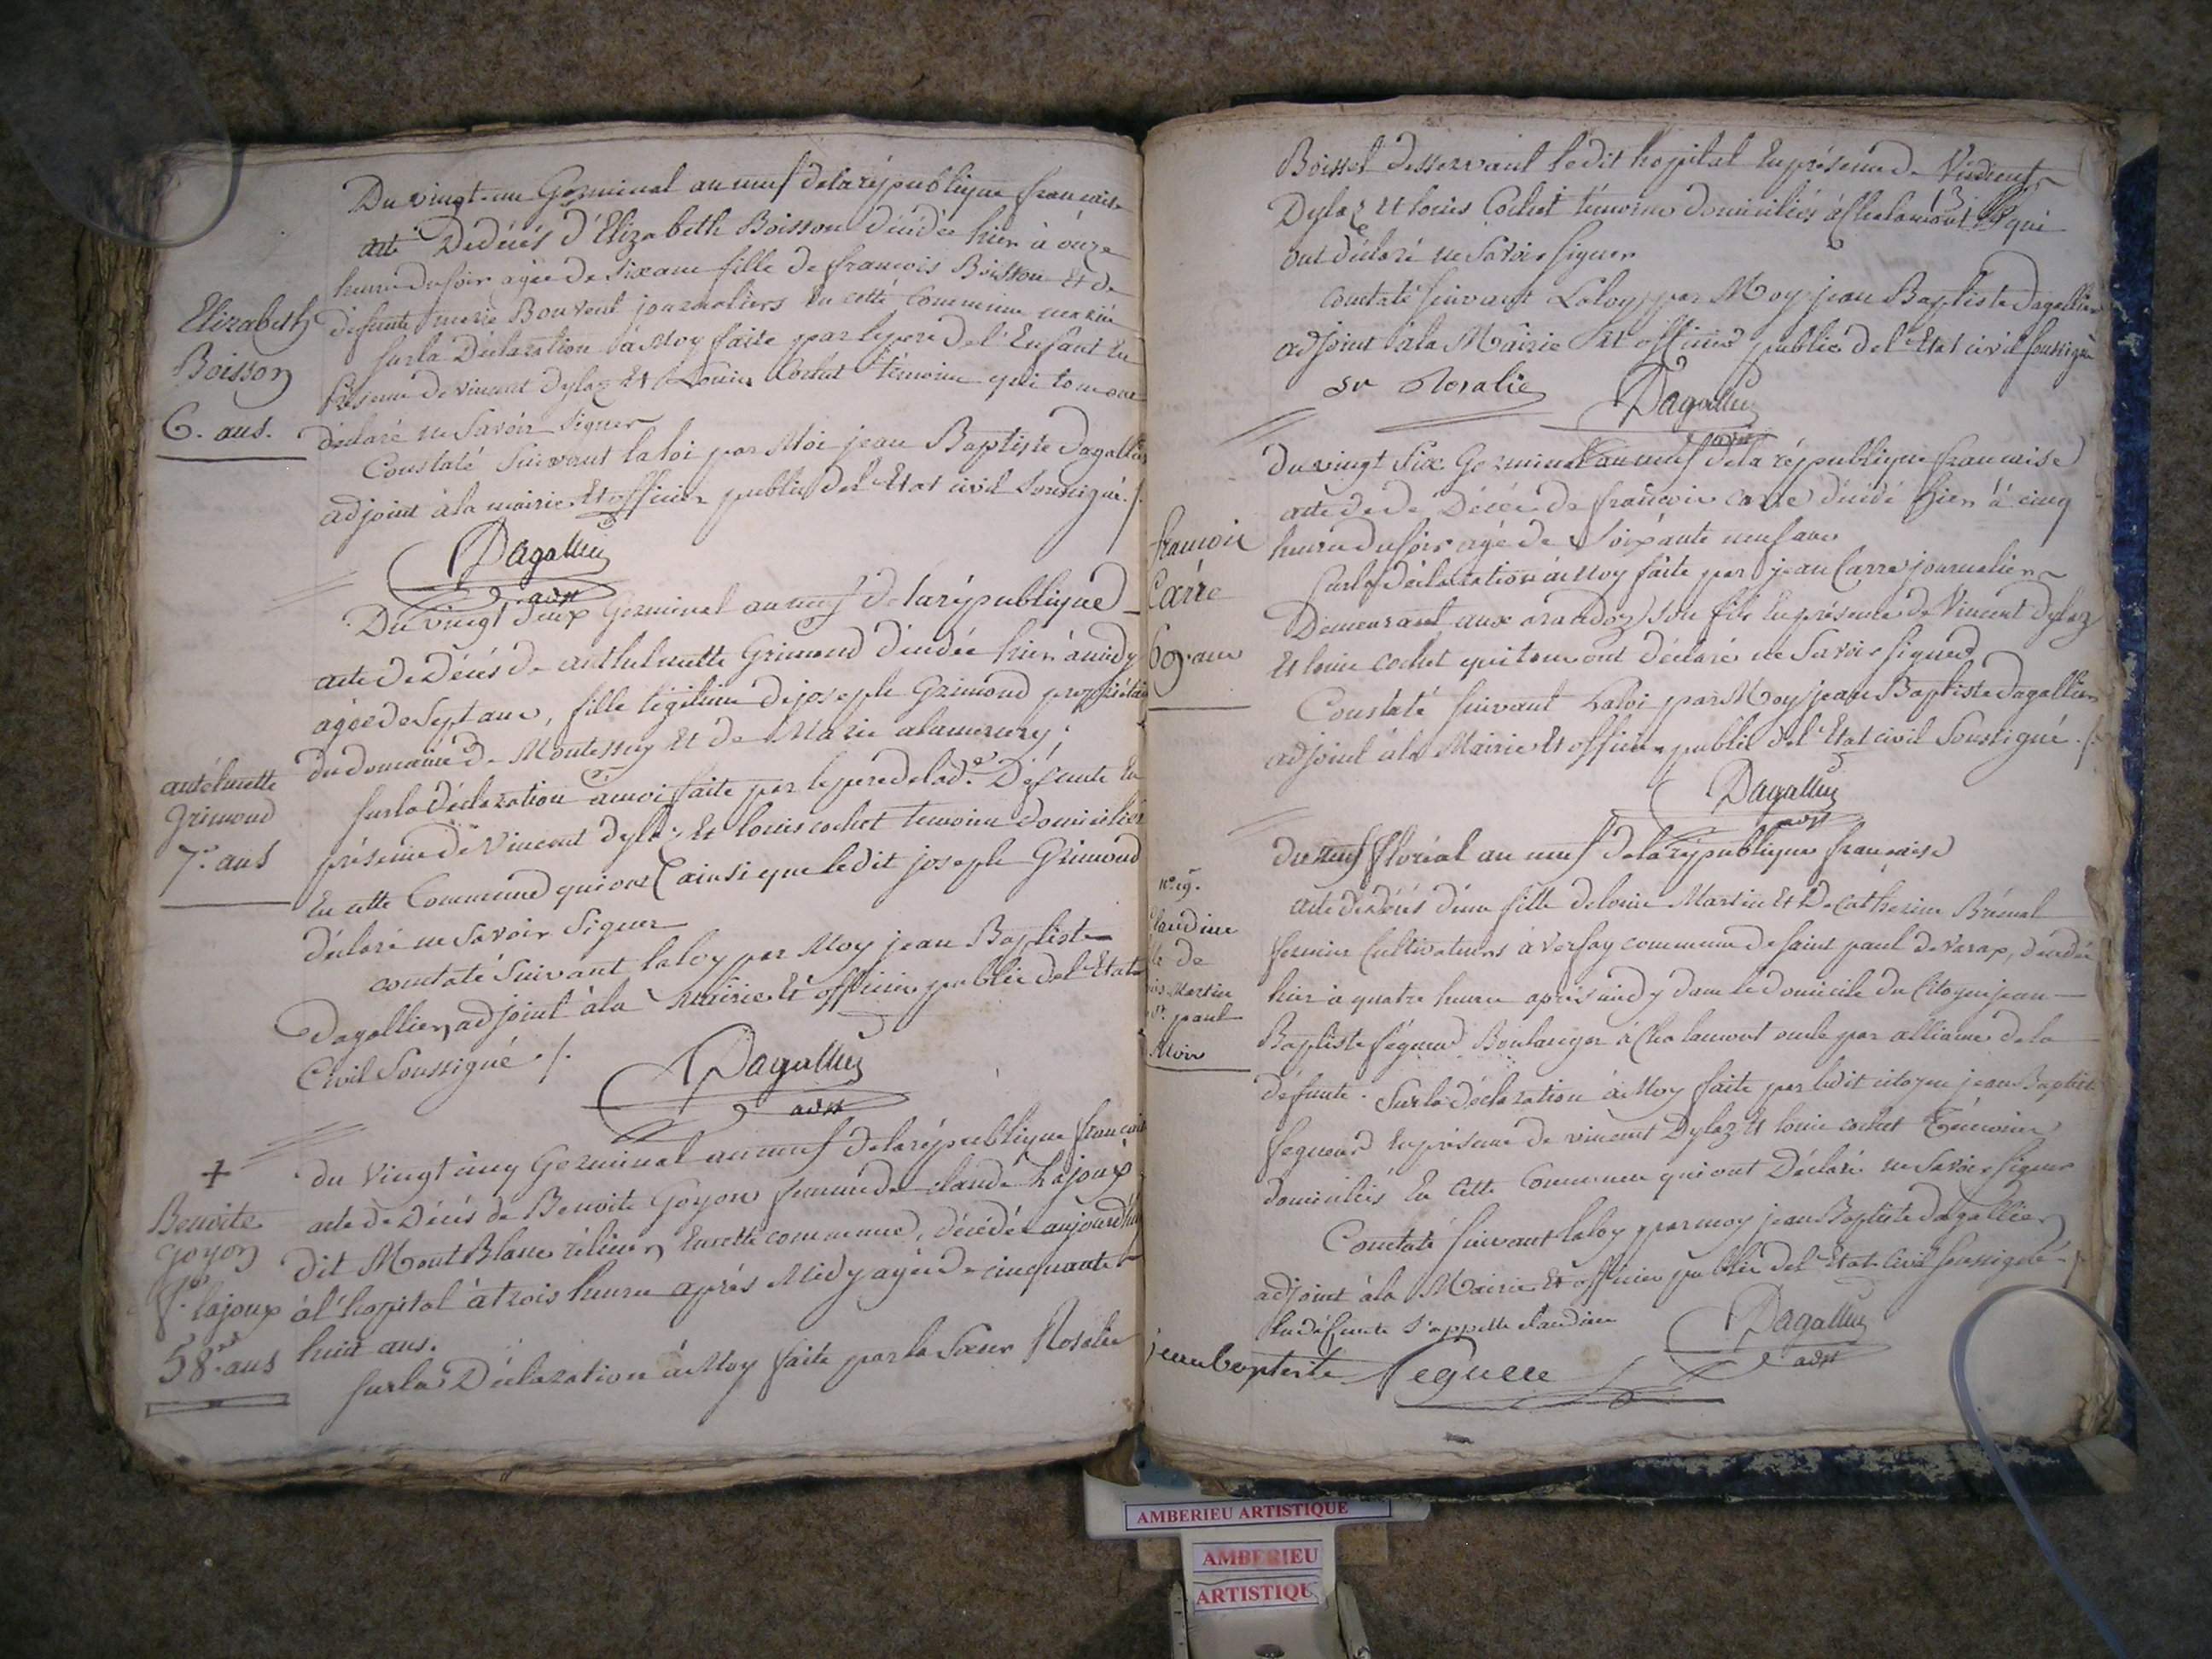 Du vingt-un Germinal an neuf de la république francaise
acte De décés d'Elizabeth Boisson décédée hier à onze
heure du soir agée de six ans fille de francois Boisson Et de
defunte marie Bouvent journaliers En cette Commune
Sur la Déclaration à Moy faite par le pere de l'Enfant En
présence de vincent Dylaz Et Louis Cochet témoins qui tous ont
déclaré ne Savoir Signer
Constaté Suivant la loi par Moi jean Baptiste Dagallier
adjoint à la mairie Et officier public del'Etat civil Soussigné ./.
Elizabeth
Boisson
6. ans.
Dagallier
adjt
Du vingt deux Germinal an neuf de la république
acte De Décés de anthelmette Grimond décédée hier à midy
agée de Sept ans, fille légitime de joseph Grimond propriétaire
du domaine de Montessuy Et de Marie alamercery;
Sur la Déclaration à moi faite par le pere de lad.e Défunte En
présence de Vincent Dylaz Et Louis cochet temoins domiciliés
En cette Commune qui ont ainsi que ledit joseph Grimond
déclaré ne Savoir Signer
constaté Suivant la loy par Moy jean Baptiste
Dagallier adjoint à la Mairie Et officier public del'Etat
Civil Soussigné ./.
antelmette
Grimond
7. ans
Dagallier
adjt
du Vingt cinq Germinal an neuf de la république francaise
acte de Décés de Benoite Goyon femme de claude Lajoux
dit Mont Blanc En cette commune, décédée aujourd'hui
à l'hopital à trois heure aprés Midy agée de cinquante
huit ans.
Sur la Déclaration à Moy faite par la Sœur Rosalie
+
Benoite
goyon
f.e lajoux
58. ans
Boisset desservant ledit hopital En présence de Vincent
Dylaz Et louis Cochet témoins domiciliés à Chalamont qui
ont déclaré ne Savoir Signer
13
constaté suivant La loy par Moy jean Baptiste Dagallier
adjoint à la Mairie Et officier public del'Etat civil soussigné
sr Rosalie
Dagallier
adjt
du vingt Six Germinal an neuf de la république francaise
acte de Décés de francois carre décédé hier à cinq
heure du soir agé de Soixante neuf ans
Sur la déclaration à Moy faite par jean Carre journalier
Demeurant aux son fils En présence de Vincent Dylaz
Et louis cochet qui tous ont déclaré ne Savoir signer
Constaté suivant La loi par Moy jean Baptiste Dagallier
adjoint à la Mairie Et officier public del'Etat civil Soussigné ./.
francois
Carre
69. ans
Dagallier
adjt
du neuf floréal an neuf de la république francaise
acte de Décés d'une fille de louis Martin Et De Catherine Brémal
fermiers Cultivateurs à Versay commune de Saint paul de Varax, décédée
hier à quatre heure aprés midy dans le domicile du Citoyen jean
Baptiste Seguer Boulanger à Chalamont oncle par alliance de la
défunte. Sur la déclaration à Moy faite par ledit citoyen jean Baptiste
Seguer En présence de vincent Dylaz Et louis cochet Témoins
domiciliés En Cette Commune qui ont Déclaré ne Savoir Signer
Constaté suivant la loy par moy jean Baptiste Dagallier
adjoint à la Mairie Et officier public del'Etat Civil soussigné ./.
la défunte s'appelle claudine
n.º 19.
Martin
St. paul
Dagallier
adjt
jean baptiste Seguere
AMBERIEU ARTISTIQUE
AMBERIEU
ARTISTIQU